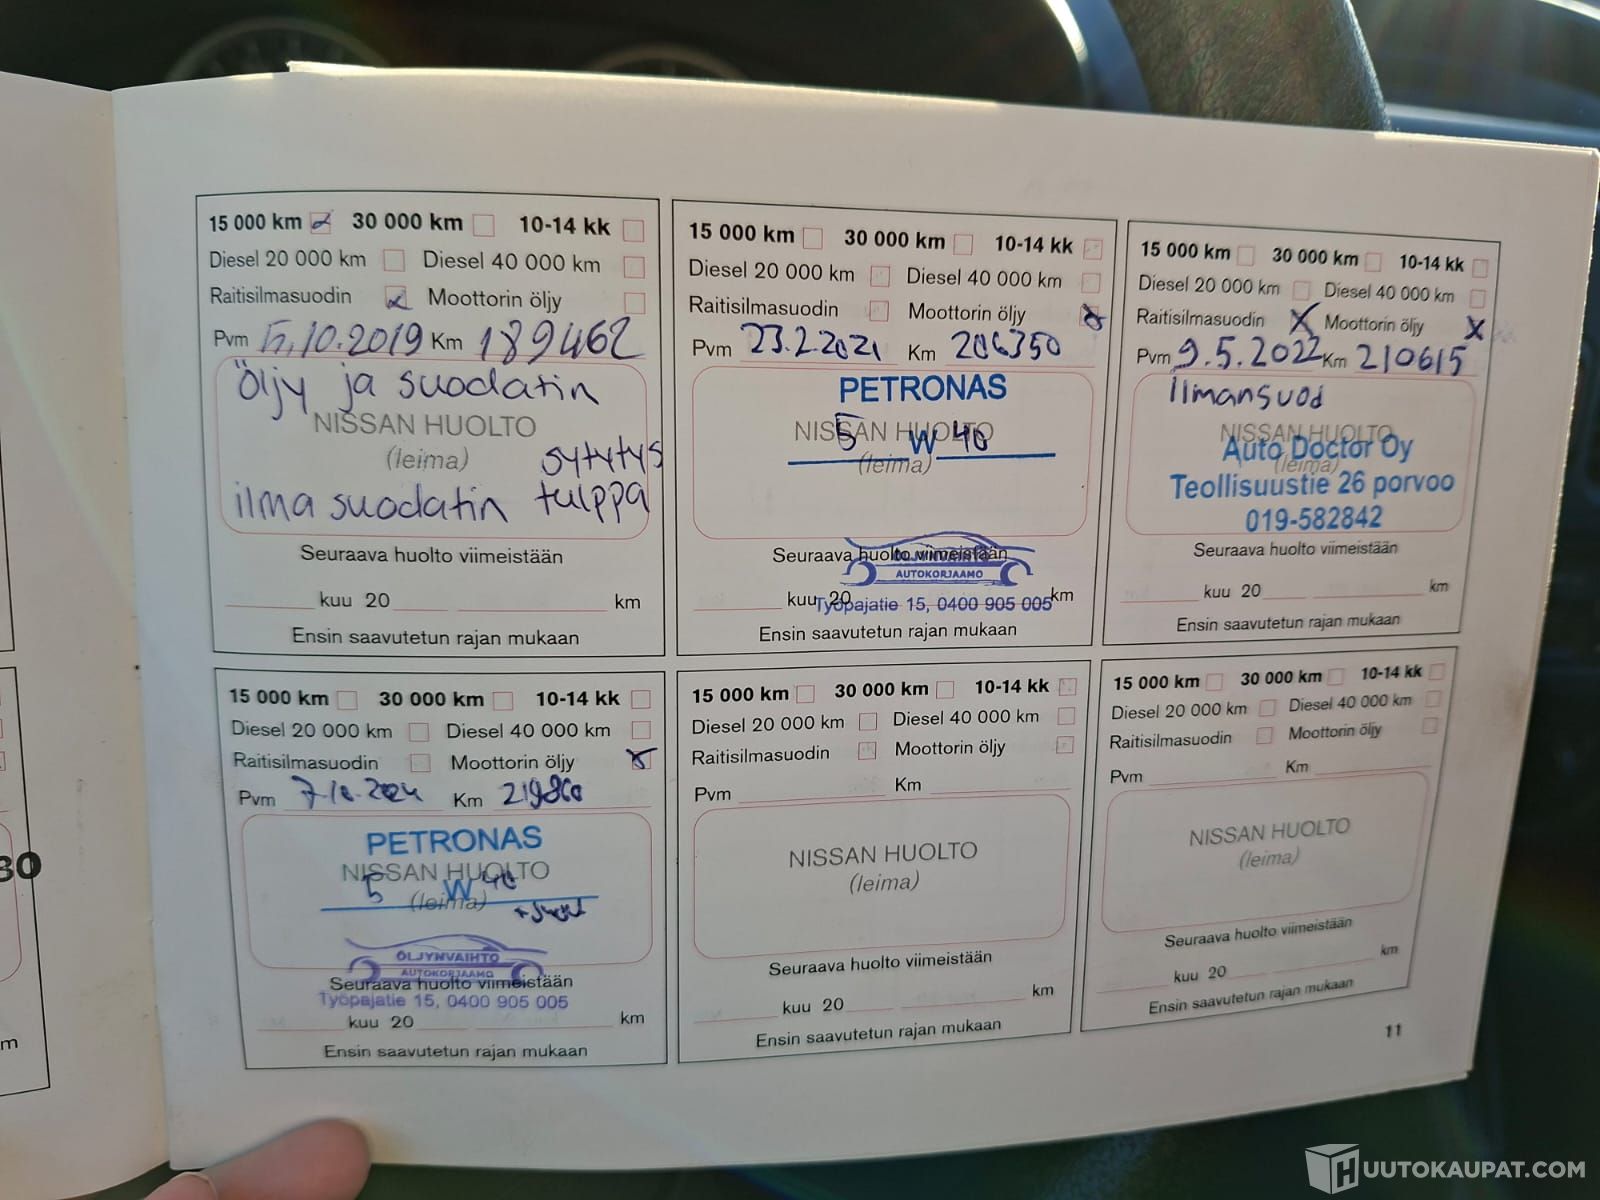 15 000 km 30 000 km 10-14 kk
Diesel 20 000 km Diesel 40 000 km
Raitisilmasuodin Moottorin öljy
Pvm 5.10.2019 Km 189462
Öljy ja suodatin
NISSAN HUOLTO
(leima) sytytys
ilma suodatin tulppa
Seuraava huolto viimeistään
kuu 20 km
Ensin saavutetun rajan mukaan
15 000 km 30 000 km 10-14 kk
Diesel 20 000 km Diesel 40 000 km
Raitisilmasuodin Moottorin öljy x
Pvm 23.2.2021 Km 206350
PETRONAS
NISSAN HUOLTO
5 W 40
(leima)
Seuraava huolto viimeistään
AUTOKORJAAMO
kuu 20 km
Työpajatie 15, 0400 905 005
Ensin saavutetun rajan mukaan
15 000 km 30 000 km 10-14 kk
Diesel 20 000 km Diesel 40 000 km
Raitisilmasuodin X Moottorin öljy X
Pvm 9.5.2022 Km 210615
Ilmansuod
NISSAN HUOLTO
Auto Doctor Oy
(leima)
Teollisuustie 26 porvoo
019-582842
Seuraava huolto viimeistään
kuu 20 km
Ensin saavutetun rajan mukaan
15 000 km 30 000 km 10-14 kk
Diesel 20 000 km Diesel 40 000 km
Raitisilmasuodin Moottorin öljy x
Pvm 7.10.2024 Km
PETRONAS
NISSAN HUOLTO
5 W 40
(leima)
ÖLJYNVAIHTO
AUTOKORJAAMO
Seuraava huolto viimeistään
Työpajatie 15, 0400 905 005
kuu 20 km
Ensin saavutetun rajan mukaan
15 000 km 30 000 km 10-14 kk
Diesel 20 000 km Diesel 40 000 km
Raitisilmasuodin Moottorin öljy
Pvm Km
NISSAN HUOLTO
(leima)
Seuraava huolto viimeistään
kuu 20 km
Ensin saavutetun rajan mukaan
15 000 km 30 000 km 10-14 kk
Diesel 20 000 km Diesel 40 000 km
Raitisilmasuodin Moottorin öljy
Pvm Km
NISSAN HUOLTO
(leima)
Seuraava huolto viimeistään
kuu 20 km
Ensin saavutetun rajan mukaan
11
HUUTOKAUPAT.COM